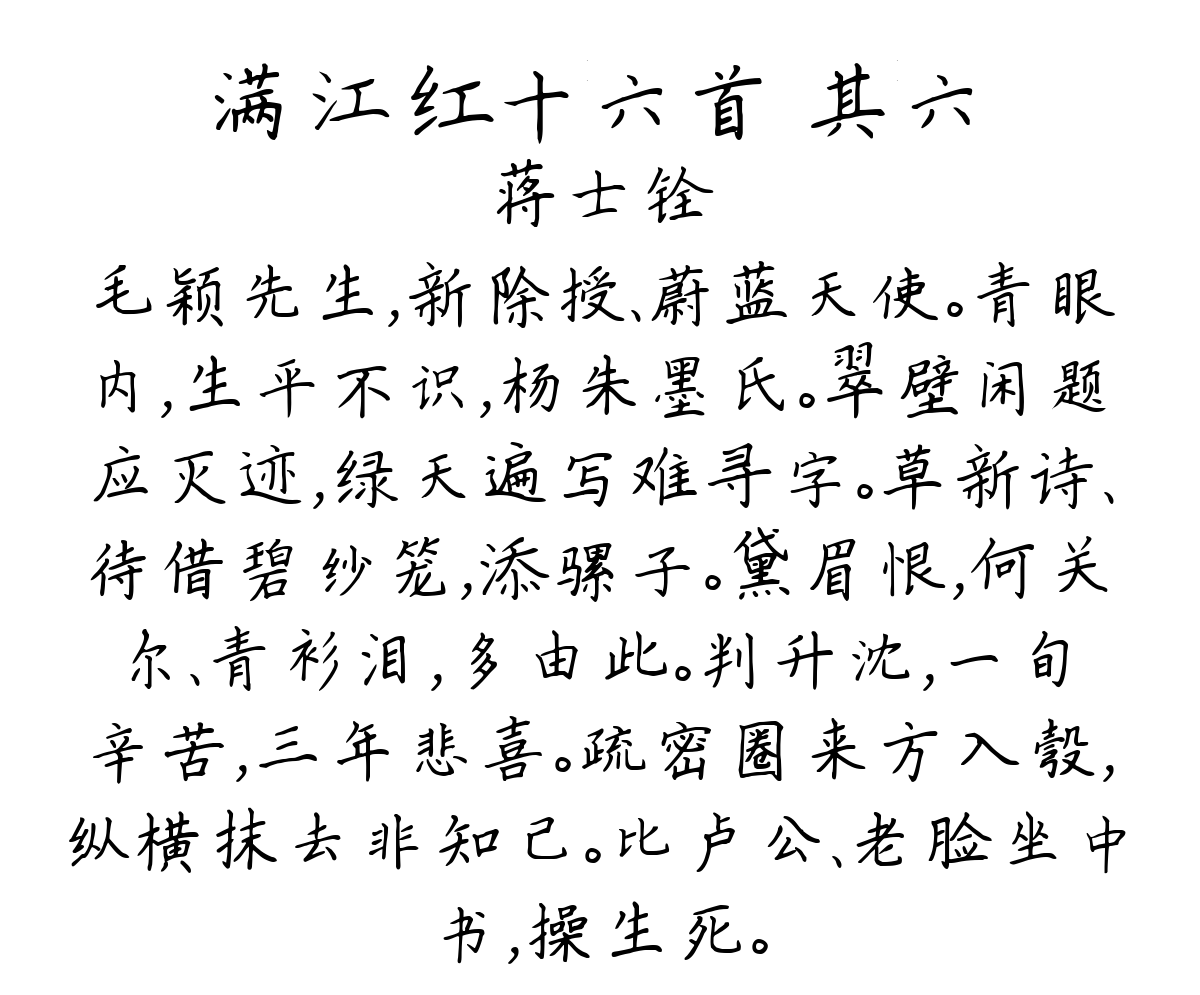 满江红十六首 其六
蒋士铨
毛颖先生,新除授、蔚蓝天使。青眼
内,生平不识,杨朱墨氏。翠壁闲题
应灭迹,绿天遍写难寻字。草新诗、
待借碧纱笼,添骡子。黛眉恨,何关
尔、青衫泪,多由此。判升沈,一旬
辛苦,三年悲喜。疏密圈来方入彀,
纵横抹去非知己。比卢公、老脸坐中
书,操生死。